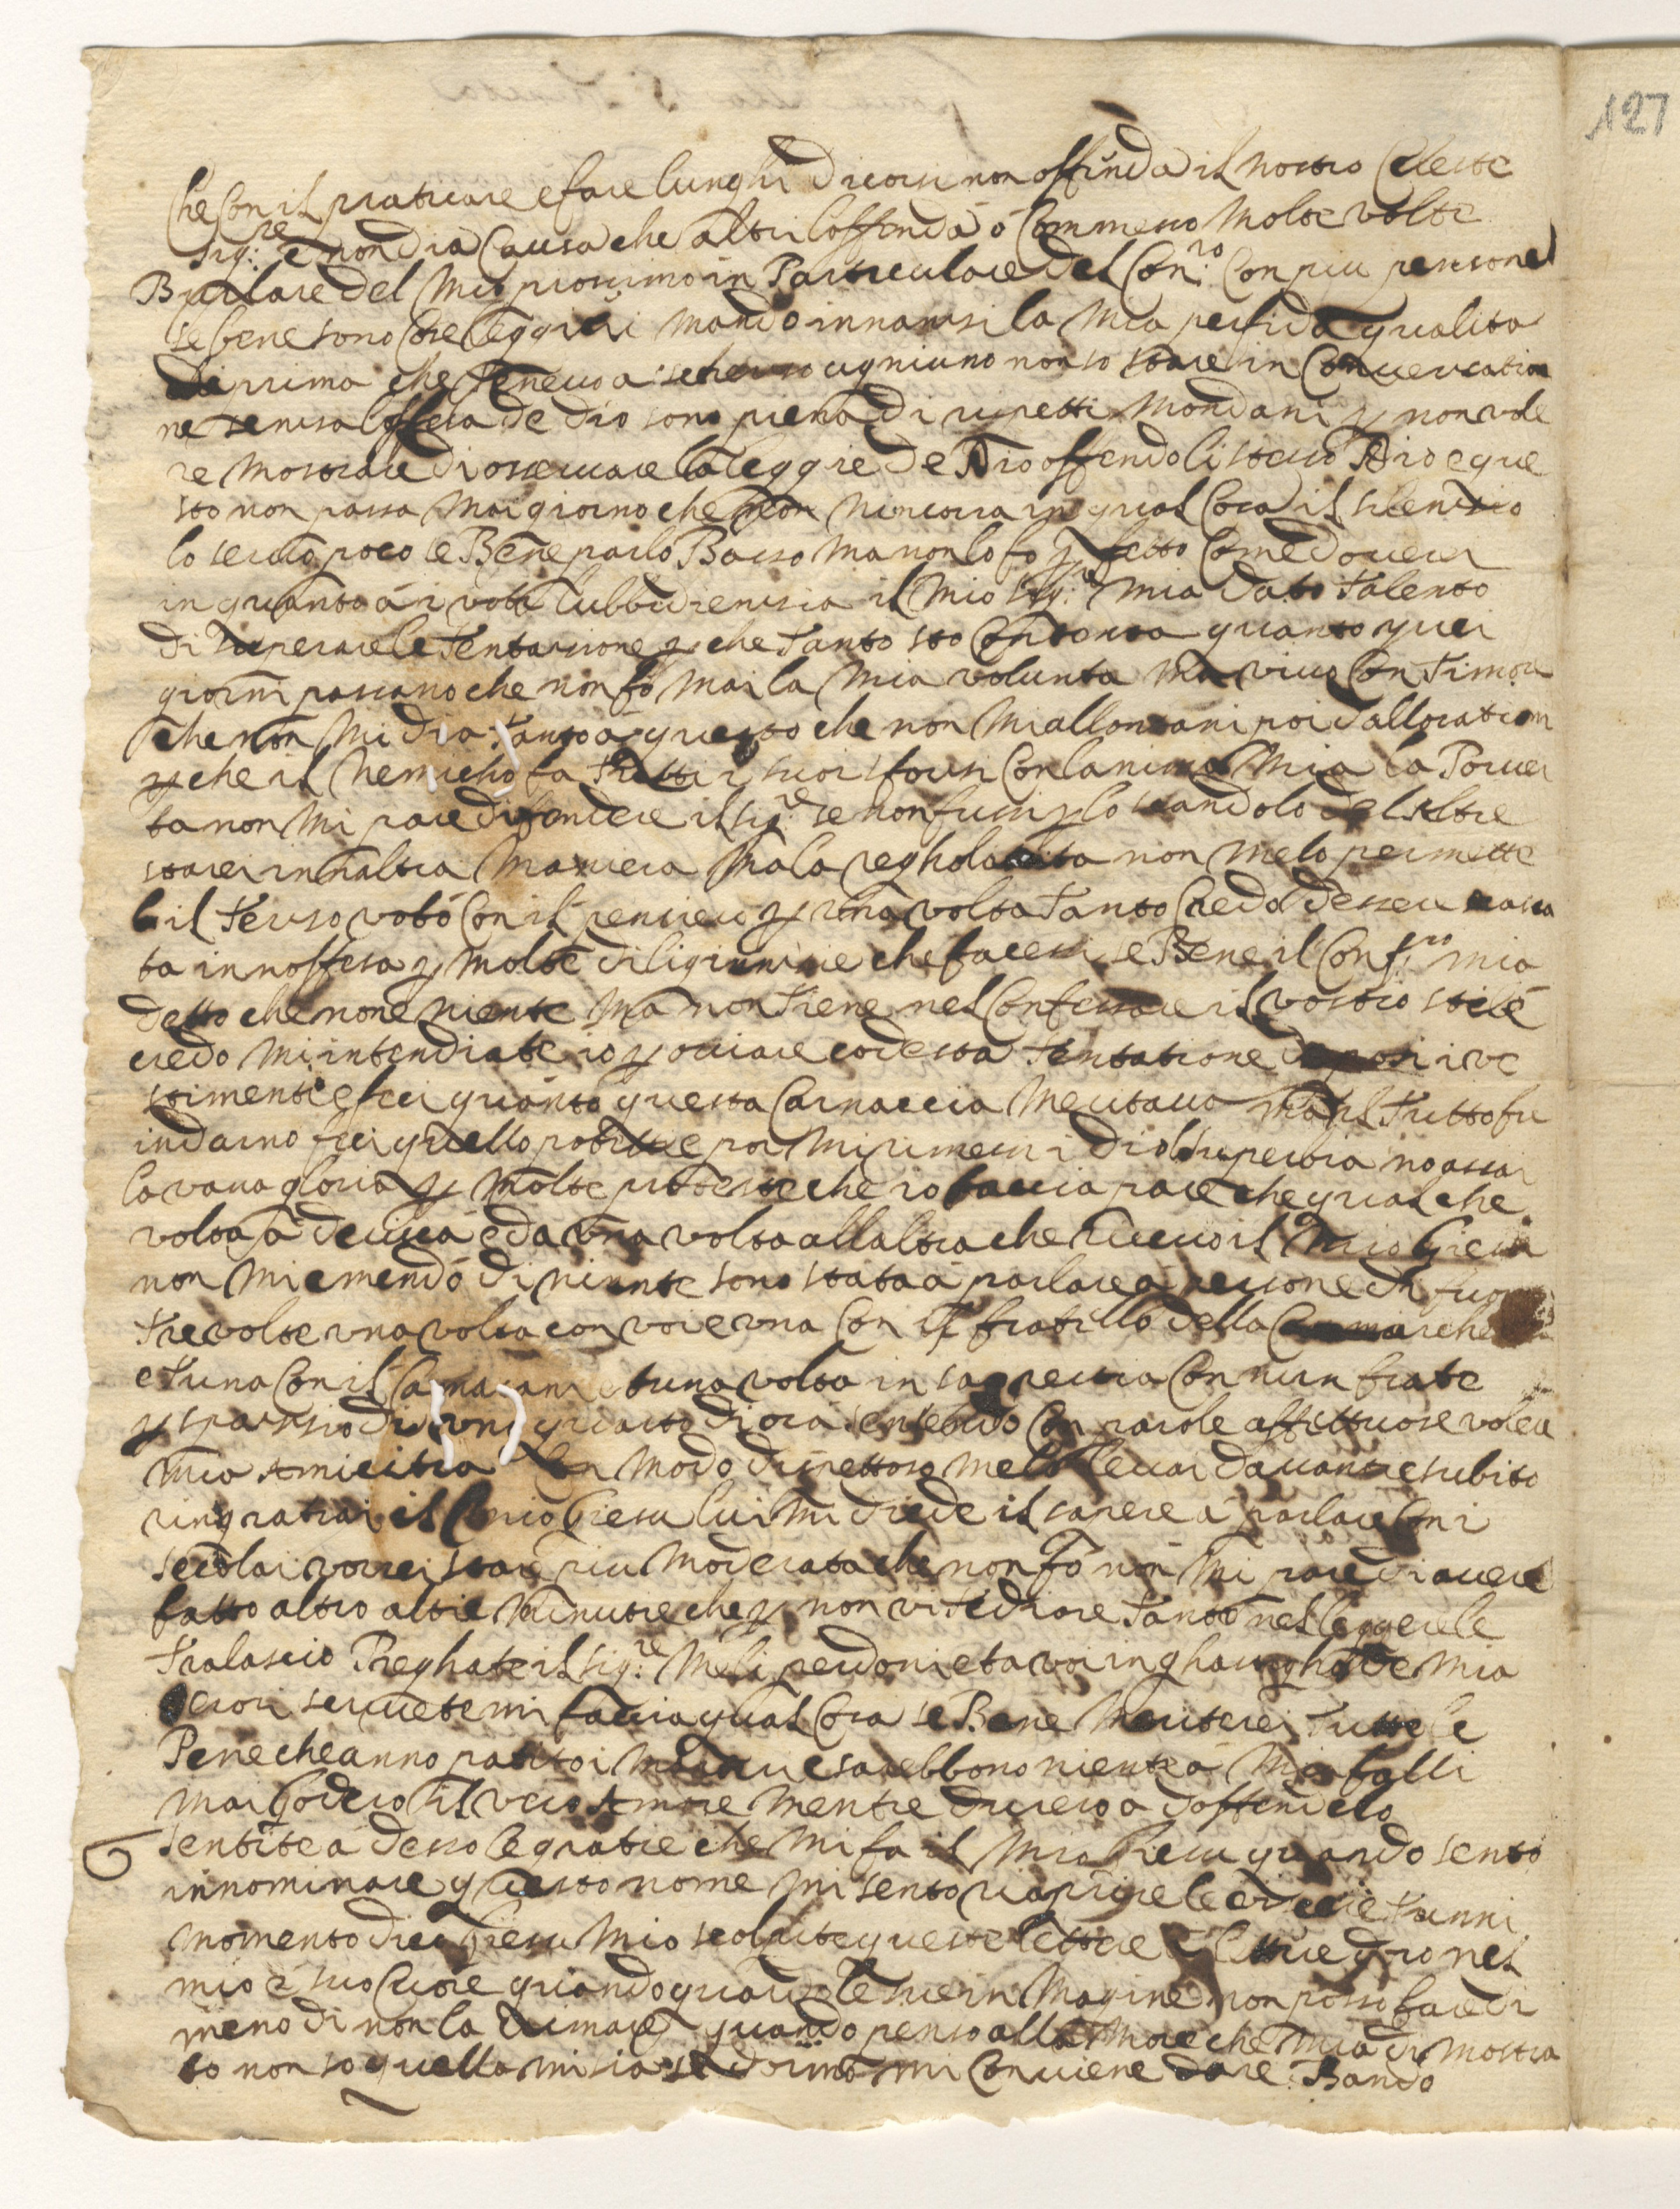 127
Che Con il praticare e fare lunghi dicorsi non offinda il nostro Celeste
Sig:re e non dia Causa che altri l offenda ó Commesso Molte volte
Burlare del Mio prossimo in Particulare del Con:ro Con piu persone
se bene sono Cose leggieri mando innansi la Mia perfida qualita
di prima che tenevo a scherso ogniuno non so stare in Conversatio
ne sensa l offesa de dio sono piena di rispetti Mondani p non vole
re Mostrare di osservare la leggie de Dio offendo listesso Dio e que
sto non passa Mai giorno che non nincorra in qual Cosa il silensio
lo servo poco se Bene parlo Basso Ma non lo fo p fetto Come doverei
in quanto á i voti l ubbidiensia il Mio Sig:re mia dato talento
di superare le tentassione p che tanto sto Contenta quanto quei
giorni passano che non fo mai la Mia volunta Ma vivo Con timore
che non Mi dia tanto a questo che non Mi allontani poi dall oration
p che il Nemicho fa tutti i suoi sforsi Con lanima Mia la Pover
ta non Mi pare di fendere il Sig:re se non fussi p lo scandolo del Altre
starei in naltra Maniera Ma la reghola non Melo permette
il terso voto Con il pensiero p una volta tanto Credo dessere
ta innoffesa p Molte diligiensie che facessi se Bene il Conf:ro mia
detto che none niente Ma non tiene nel Confessare il vostro stile
credo Mi intendiate io p oviare codessta tentatione ive
stimenti e feci quanto questa Carnaccia Meritava ma il tutto fu
indarno feci quello potessi e poi Mi rimessi i dio superbia no assai
la vana gloria p Molte proteste che io faccia pare che qual che
volta á e da una volta all altra che ricevo il Mio Giesu
non Mi emendo di niente sono stata á parlare á persone di fuori
tre volte una volta con voi e una Con il fratello della
e t una Con il e t una volta in sagrestia Con nun frate
p spassio di un quarto di ora sentendo Con parole affittuose volea
mia Amicitia Con Modo dispettoso Melo levai davanti e subito
ringratiai il Mio Giesu lui Mi diede il sapere á parlare Con i
secolai vorrei stare piu Moderata che non fo non Mi pare di avere
fatto altro altre Minutie che p non vi tediare tanto nel leggerele
tralascio Preghate il Sig:re Meli perdoni e t a voi in Mia
servitemi faccia qual Cosa se Bene Meriterei tutte le
Pene che anno patito i e sarebbono niente á Miei falli
Mai godero il vero Amore Mentre d offendelo
sentite á desso le gratie che Mi fa il Mio Giesu quando sento
innominare questo nome Mi sento riaprire le t unni
momento dico Giesu Mio scolpite queste lettere nel
mio e suo Cuore quando guardo le sue in Magine non posso fare di
meno di non la quando penso all a More che Mia di Mostra
to non so quello mi sia se dormo mi Conviene dare Bando